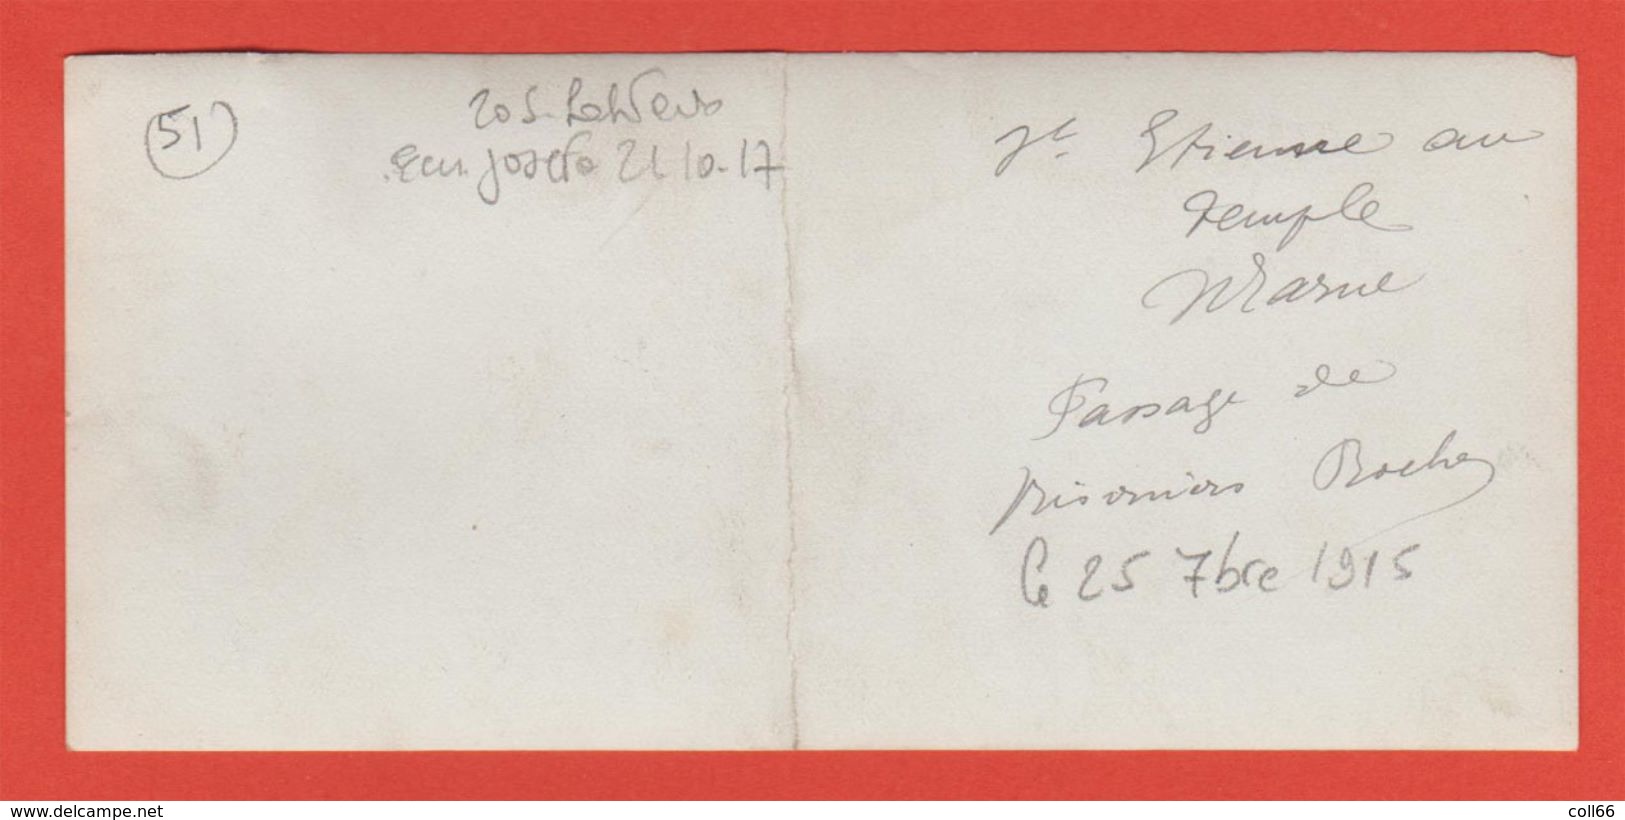 51
21 10-17
St Etienne au
Temple
Marne
Passage de
prisonniers Boches
Le 25 7bre 1915
© delcampe.net
coll66